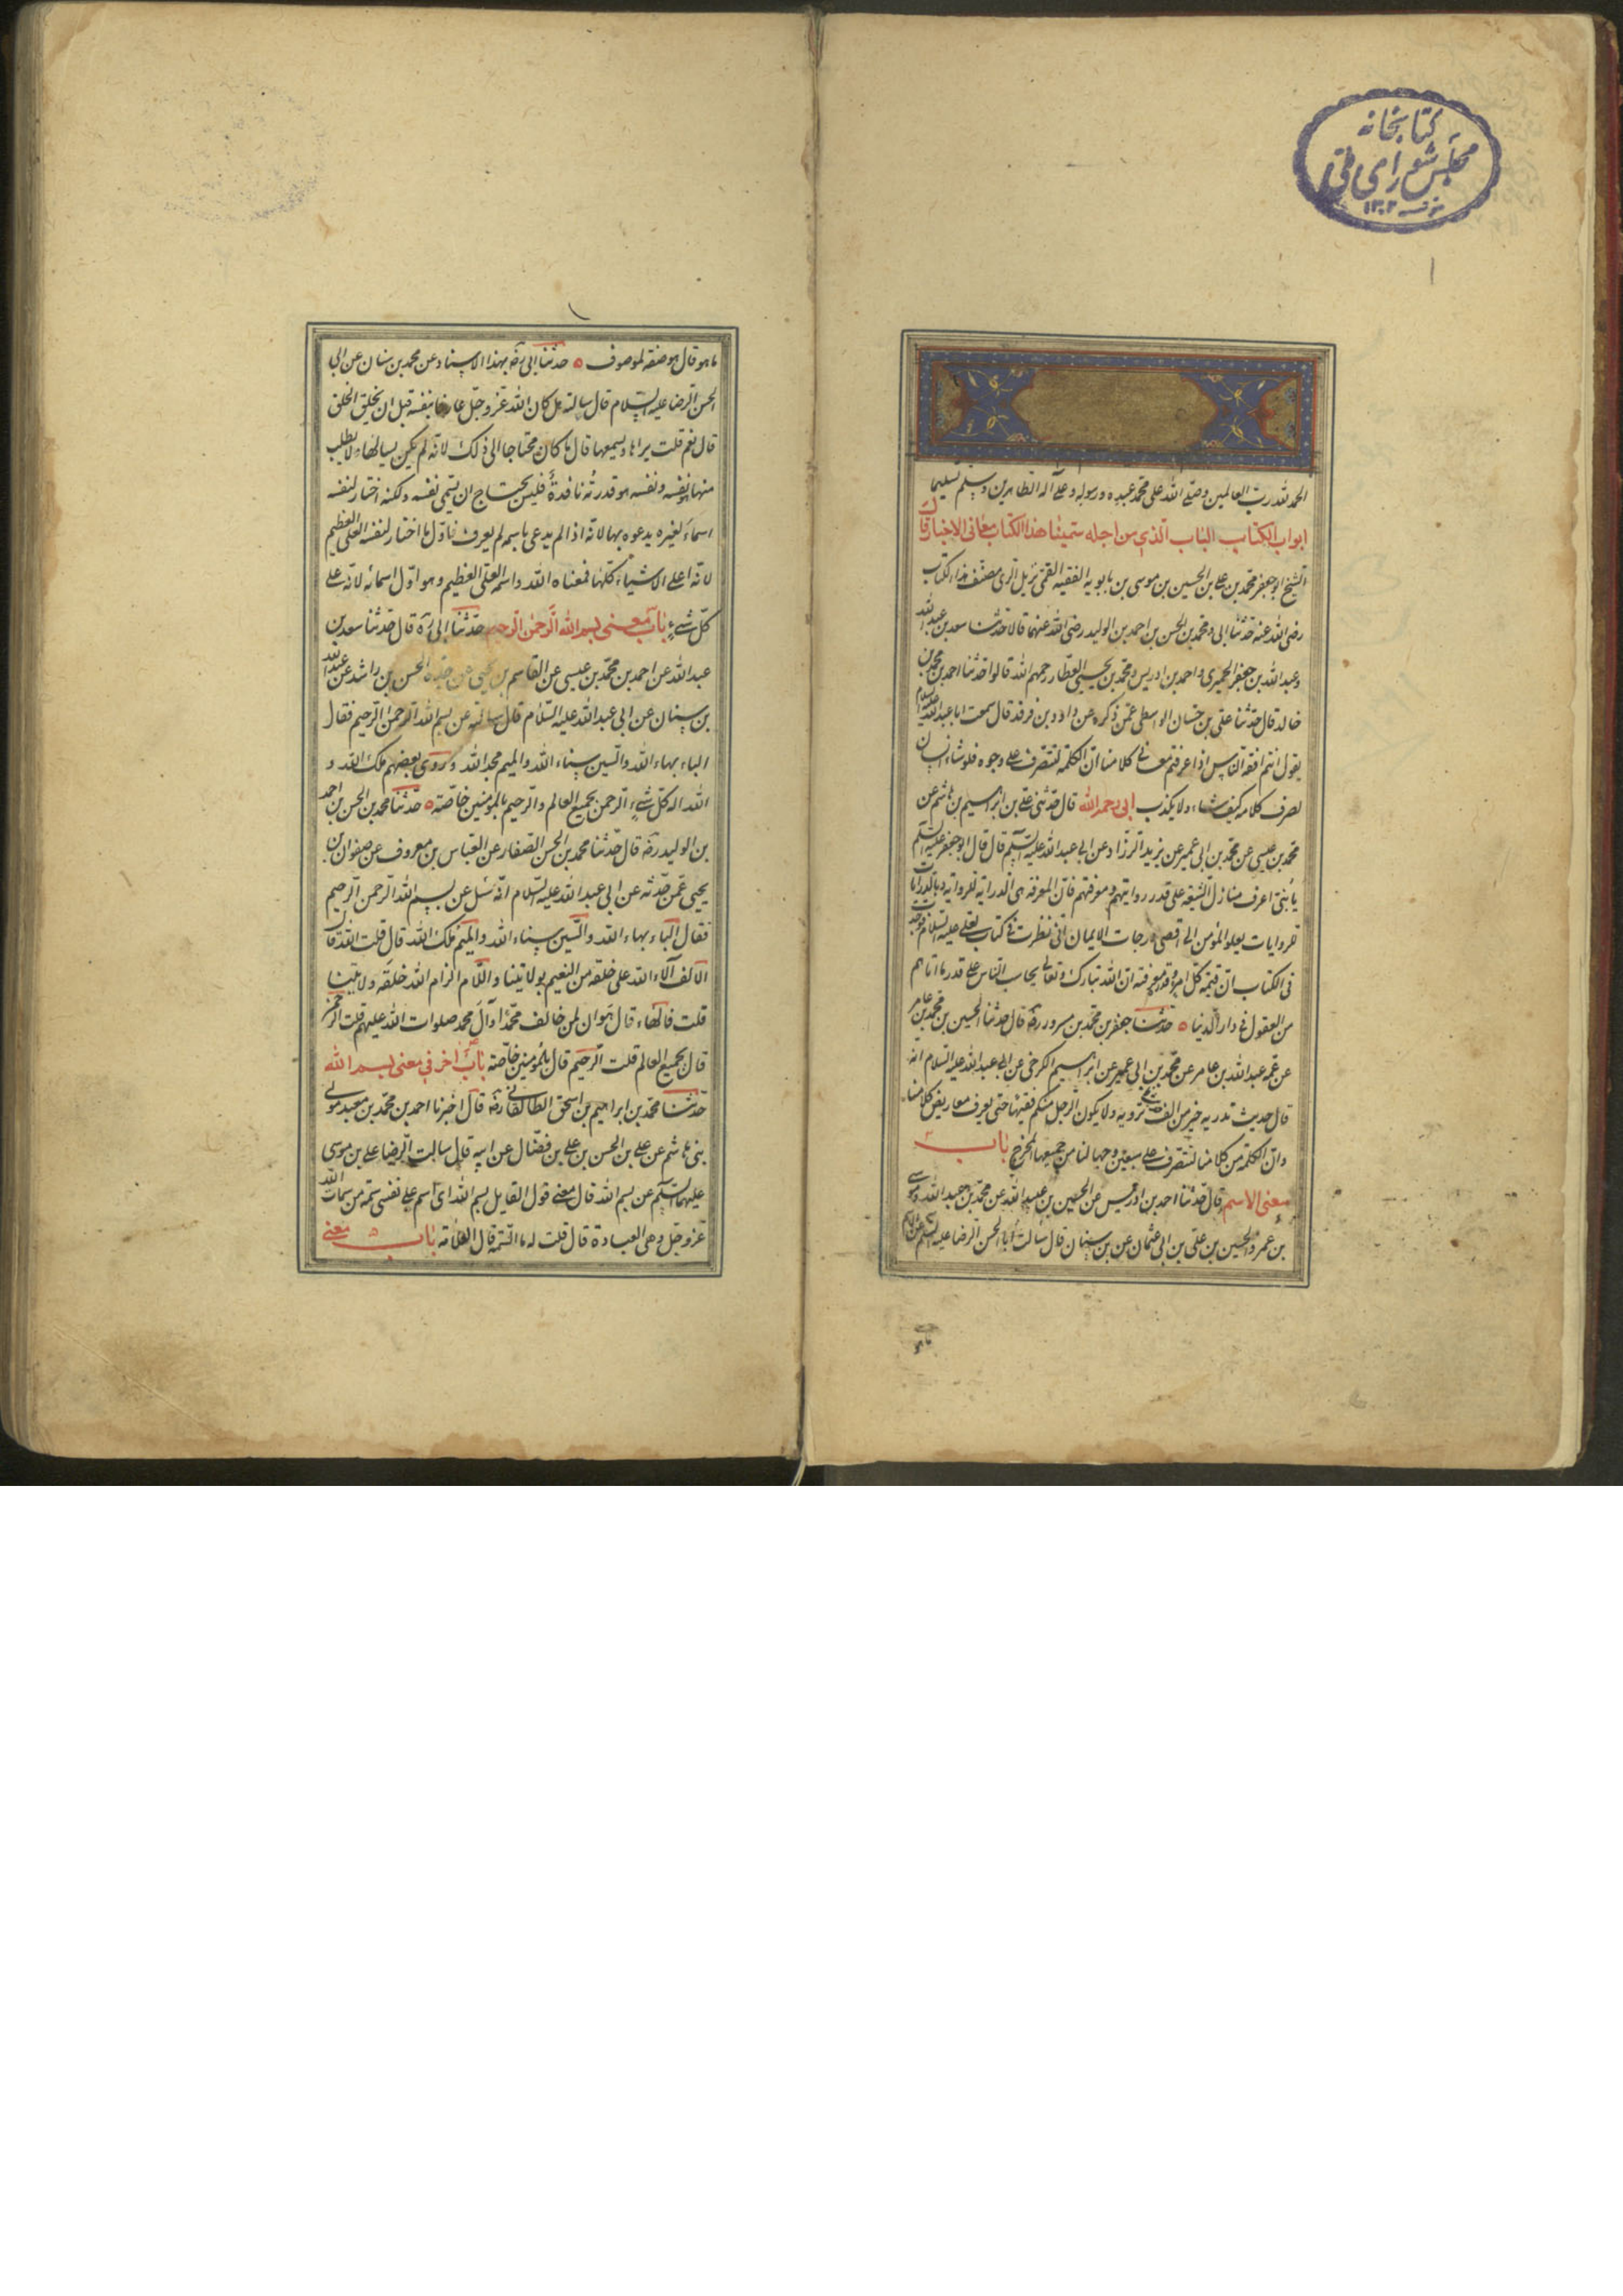 كتابخانه
مجلس شورای ملی
۱۳۰۲
۱
الحمد لله رب العالمين وصلى الله على محمد عبده ورسوله وعلى آله الطاهرين وسلم تسليما
ابواب الكتاب الباب الذي من اجله سمينا هذا الكتاب معاني الاخبار قال
الشيخ ابو جعفر محمد بن علي بن الحسين بن موسى بن بابويه الفقيه القمي نزيل الري مصنف هذا الكتاب
رضي الله عنه حدثنا ابي ومحمد بن الحسن بن احمد بن الوليد رضي الله عنهما قالا حدثنا سعد بن عبد الله
وعبد الله بن جعفر الحميري واحمد بن ادريس ومحمد بن يحيى العطار رحمهم الله قالوا حدثنا احمد بن محمد بن
خالد قال حدثنا علي بن حسان الواسطي عمن ذكره عن داود بن فرقد قال سمعت ابا عبد الله عليه السلام
يقول انتم افقه الناس اذا عرفتم معاني كلامنا ان الكلمة لتنصرف على وجوه فلو شاء انسان
لصرف كلامه كيف شاء ولا يكذب ابي رحمه الله قال حدثني علي بن ابراهيم بن هاشم عن
محمد بن عيسى عن محمد بن ابي عمير عن بريد الرزاد عن ابي عبد الله عليه السلم قال قال ابو جعفر عليه السلم
يا بني اعرف منازل الشيعة على قدر روايتهم ومعرفتهم فان المعرفة هي الدراية للرواية وبالدرايات
للروايات يعلو المؤمن الى اقصى درجات الايمان اني نظرت في كتاب لعلي عليه السلام فوجدت
في الكتاب ان قيمة كل امرء وقدره معرفته ان الله تبارك وتعالى يحاسب الناس على قدر ما اتاهم
من العقول في دار الدنيا ٥ حدثنا جعفر بن محمد بن مسرور ره قال حدثنا الحسين بن محمد بن عامر
عن عمه عبد الله بن عامر عن محمد بن ابي عمير عن ابراهيم الكرخي عن ابي عبد الله عليه السلام انه
قال حديث تدريه خير من الف ترويه ولا يكون الرجل منكم فقيها حتى يعرف معاريض كلامنا
وان الكلمة من كلامنا لتنصرف على سبعين وجها لنا من جميعها المخرج باب
معنى الاسم قال حدثنا احمد بن ادريس عن الحسين بن عبيد الله عن محمد بن عبد الله وموسى
بن عمرو والحسين بن علي بن ابي عثمان عن بن سنان قال سالت ابا الحسن الرضا عليه السلم عن الاسم
ما هو
ما هو قال هو صفة لموصوف ٥ حدثنا ابي ره بهذا الاسناد عن محمد بن سنان عن ابي
الحسن الرضا عليه السلام قال سالته هل كان الله عز وجل عارفا بنفسه قبل ان يخلق الخلق
قال نعم قلت يراها ويسمعها قال ما كان محتاجا الى ذلك لانه لم يكن يسالها ولا يطلب
منها هو نفسه ونفسه هو قدرته نافذة فليس يحتاج ان يسمي نفسه ولكنه اختار لنفسه
اسماء لغيره يدعوه بها لانه اذا لم يدعى باسم لم يعرف فاول ما اختار لنفسه العلي العظيم
لانه اعلى الاشياء كلها فمعناه الله واسمه العلي العظيم وهو اول اسمائه لانه على
كل شيء باب معنى بسم الله الرحمن الرحيم حدثنا ابي ره قال حدثنا سعد بن
عبد الله عن احمد بن محمد بن عيسى عن القاسم بن يحيى عن جده الحسن بن راشد عن عبد الله
بن سنان عن ابي عبد الله عليه السلام قال سالته عن بسم الله الرحمن الرحيم فقال
الباء بهاء الله والسين سناء الله والميم مجد الله وروى بعضهم ملك الله و
الله اله كل شيء الرحمن بجميع العالم والرحيم بالمومنين خاصة ٥ حدثنا محمد بن الحسن بن احمد
بن الوليد ره قال حدثنا محمد بن الحسن الصفار عن العباس بن معروف عن صفوان بن
يحيى عمن حدثه عن ابي عبد الله عليه السلام انه سئل عن بسم الله الرحمن الرحيم
فقال الباء بهاء الله والسين سناء الله والميم ملك الله قال قلت الله قال
الالف آلاء الله على خلقه من النعيم بولايتنا واللام الزام الله خلقه ولايتنا
قلت فالهاء قال هوان لمن خالف محمدا وآل محمد صلوات الله عليهم قلت الرحمن
قال بجميع العالم قلت الرحيم قال بالمؤمنين خاصة باب اخر في معنى بسم الله
حدثنا محمد بن ابراهيم بن اسحق الطالقاني ره قال اخبرنا احمد بن محمد بن سعيد مولى
بني هاشم عن علي بن الحسن بن علي بن فضال عن ابيه قال سالت الرضا علي بن موسى
عليهما السلم عن بسم الله قال معنى قول القايل بسم الله اي اسم على نفسي سمة من سمات الله
عز وجل وهي العبادة قال قلت له ما السمة قال العلامة باب معنى